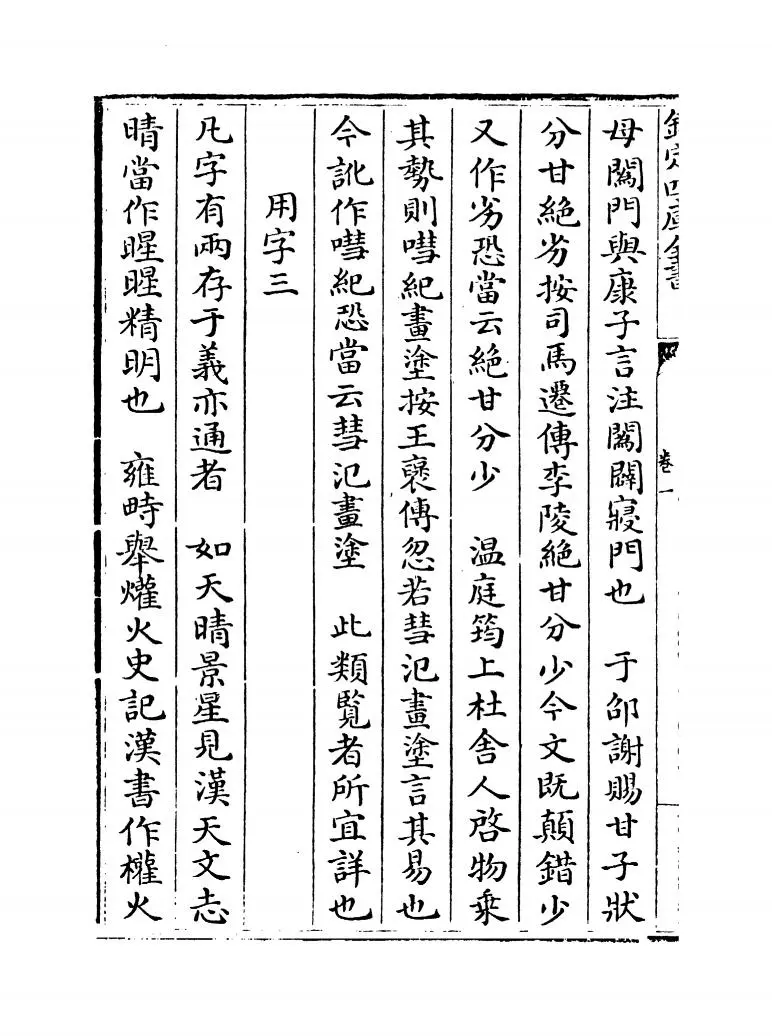 欽定四庫全書
卷一
母闖門與康子言注闖闢寢門也　于邵謝賜甘子狀
分甘絶劣按司馬遷傳李陵絶甘分少今文既顛錯少
又作劣恐當云絶甘分少　温庭筠上杜舎人啓物乗
其勢則嘒紀畫塗按王褒傳忽若彗氾畫塗言其易也
今訛作嘒紀恐當云彗氾畫塗　此類覧者所宜詳也
用字三
凡字有兩存于義亦通者　如天晴景星見漢天文志
晴當作暒暒精明也　雍畤舉爟火史記漢書作權火